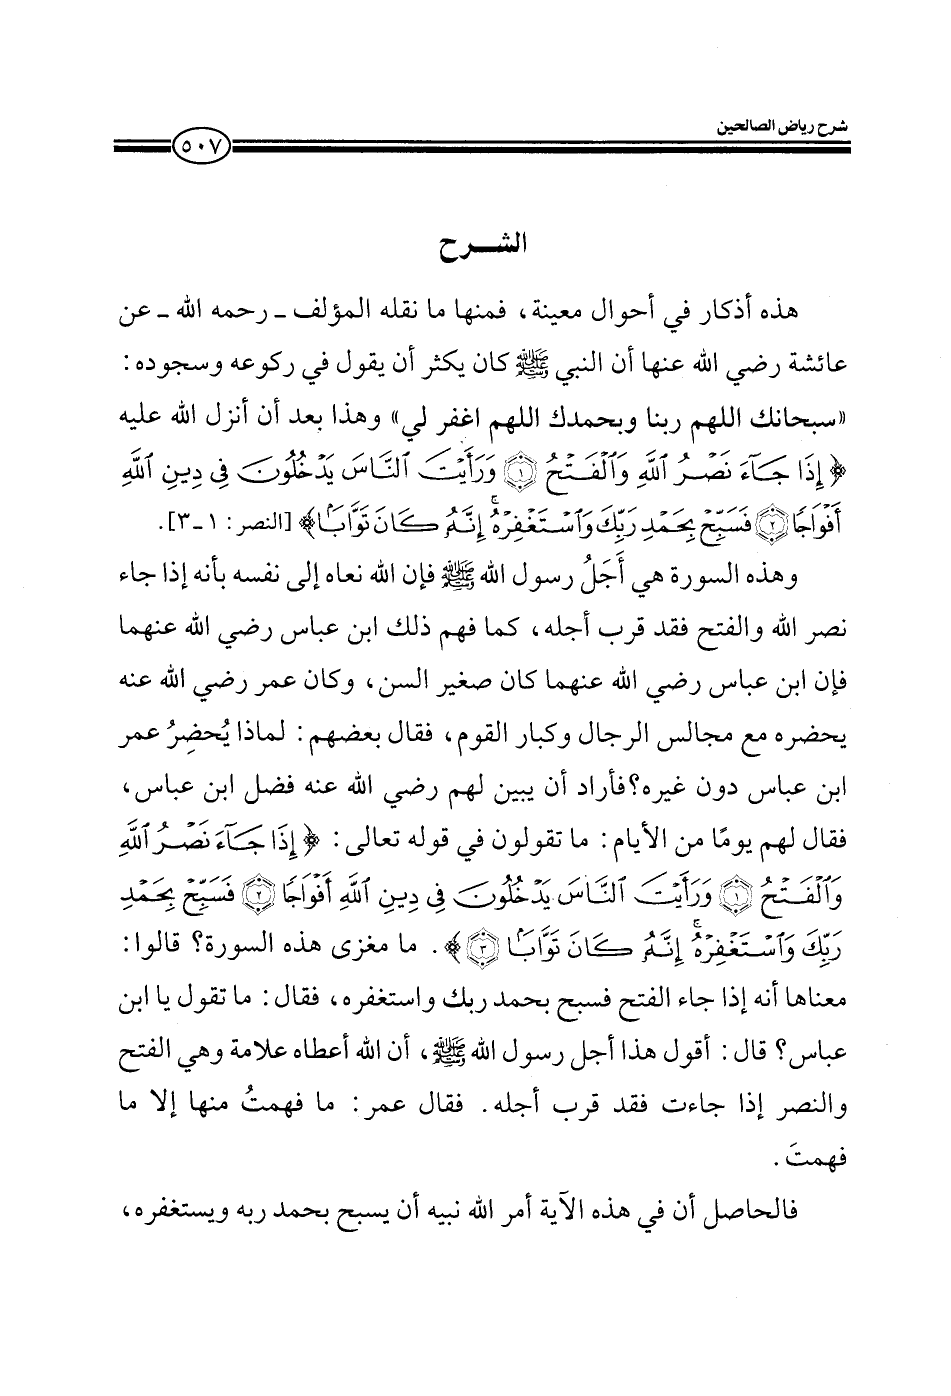 شرح رياض الصالحين
٥٠٧
الشـــرح
هذه أذكار في أحوال معينة، فمنها ما نقله المؤلف ـ رحمه الله ـ عن
عائشة رضي الله عنها أن النبي ﷺ كان يكثر أن يقول في ركوعه وسجوده:
«سبحانك اللهم ربنا وبحمدك اللهم اغفر لي» وهذا بعد أن أنزل الله عليه
﴿ إِذَا جَآءَ نَصۡرُ ٱللَّهِ وَٱلۡفَتۡحُ ۝١ وَرَأَيۡتَ ٱلنَّاسَ يَدۡخُلُونَ فِي دِينِ ٱللَّهِ
أَفۡوَاجٗا ۝٢ فَسَبِّحۡ بِحَمۡدِ رَبِّكَ وَٱسۡتَغۡفِرۡهُۚ إِنَّهُۥ كَانَ تَوَّابَۢا﴾ [النصر: ١ـ٣].
وهذه السورة هي أَجَلُ رسول الله ﷺ فإن الله نعاه إلى نفسه بأنه إذا جاء
نصر الله والفتح فقد قرب أجله، كما فهم ذلك ابن عباس رضي الله عنهما
فإن ابن عباس رضي الله عنهما كان صغير السن، وكان عمر رضي الله عنه
يحضره مع مجالس الرجال وكبار القوم، فقال بعضهم: لماذا يُحضِرُ عمر
ابن عباس دون غيره؟فأراد أن يبين لهم رضي الله عنه فضل ابن عباس،
فقال لهم يومًا من الأيام: ما تقولون في قوله تعالى: ﴿ إِذَا جَآءَ نَصۡرُ ٱللَّهِ
وَٱلۡفَتۡحُ ۝١ وَرَأَيۡتَ ٱلنَّاسَ يَدۡخُلُونَ فِي دِينِ ٱللَّهِ أَفۡوَاجٗا ۝٢ فَسَبِّحۡ بِحَمۡدِ
رَبِّكَ وَٱسۡتَغۡفِرۡهُۚ إِنَّهُۥ كَانَ تَوَّابَۢا ۝٣ ﴾. ما مغزى هذه السورة؟ قالوا:
معناها أنه إذا جاء الفتح فسبح بحمد ربك واستغفره، فقال: ما تقول يا ابن
عباس؟ قال: أقول هذا أجل رسول الله ﷺ، أن الله أعطاه علامة وهي الفتح
والنصر إذا جاءت فقد قرب أجله. فقال عمر: ما فهمتُ منها إلا ما
فهمتَ.
فالحاصل أن في هذه الآية أمر الله نبيه أن يسبح بحمد ربه ويستغفره،